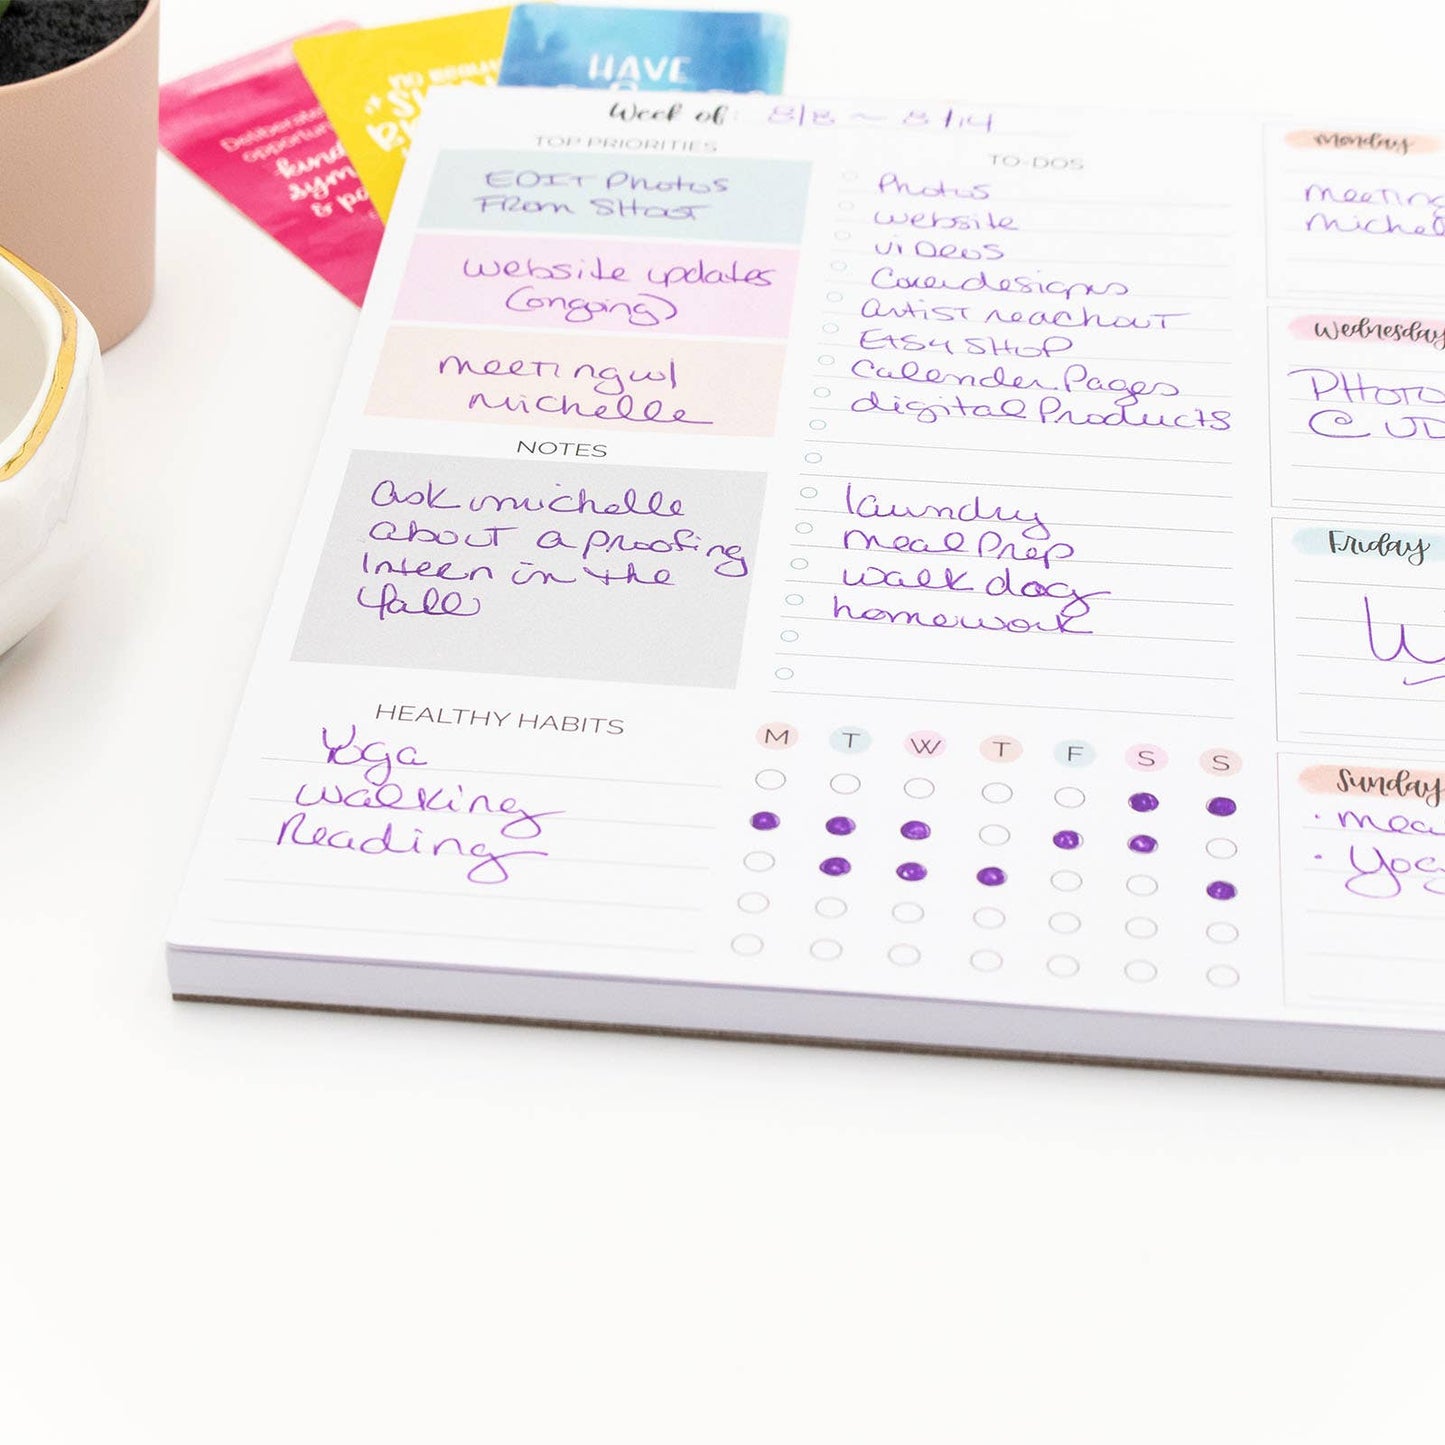 HAVE
no
Deliberate
opportun
kind
sym
& po
Week of: 8/8 ~ 8/14
TOP PRIORITIES
EDIT Photos
From SHoot
website updates
(ongoing)
meeting w/
michelle
NOTES
ask michelle
about a proofing
Intern in the
fall
TO-DOS
Photos
website
viDeos
Coverdesigns
artist reachout
Etsy SHoP
Calender Pages
digital Products
laundry
meal Prep
walk dog
homework
HEALTHY HABITS
Yoga
walking
Reading
M T W T F S S
monday
meeting
michel
Wednesday
PHoto
@ JD
Friday
W
Sunday
· mea
· Yog